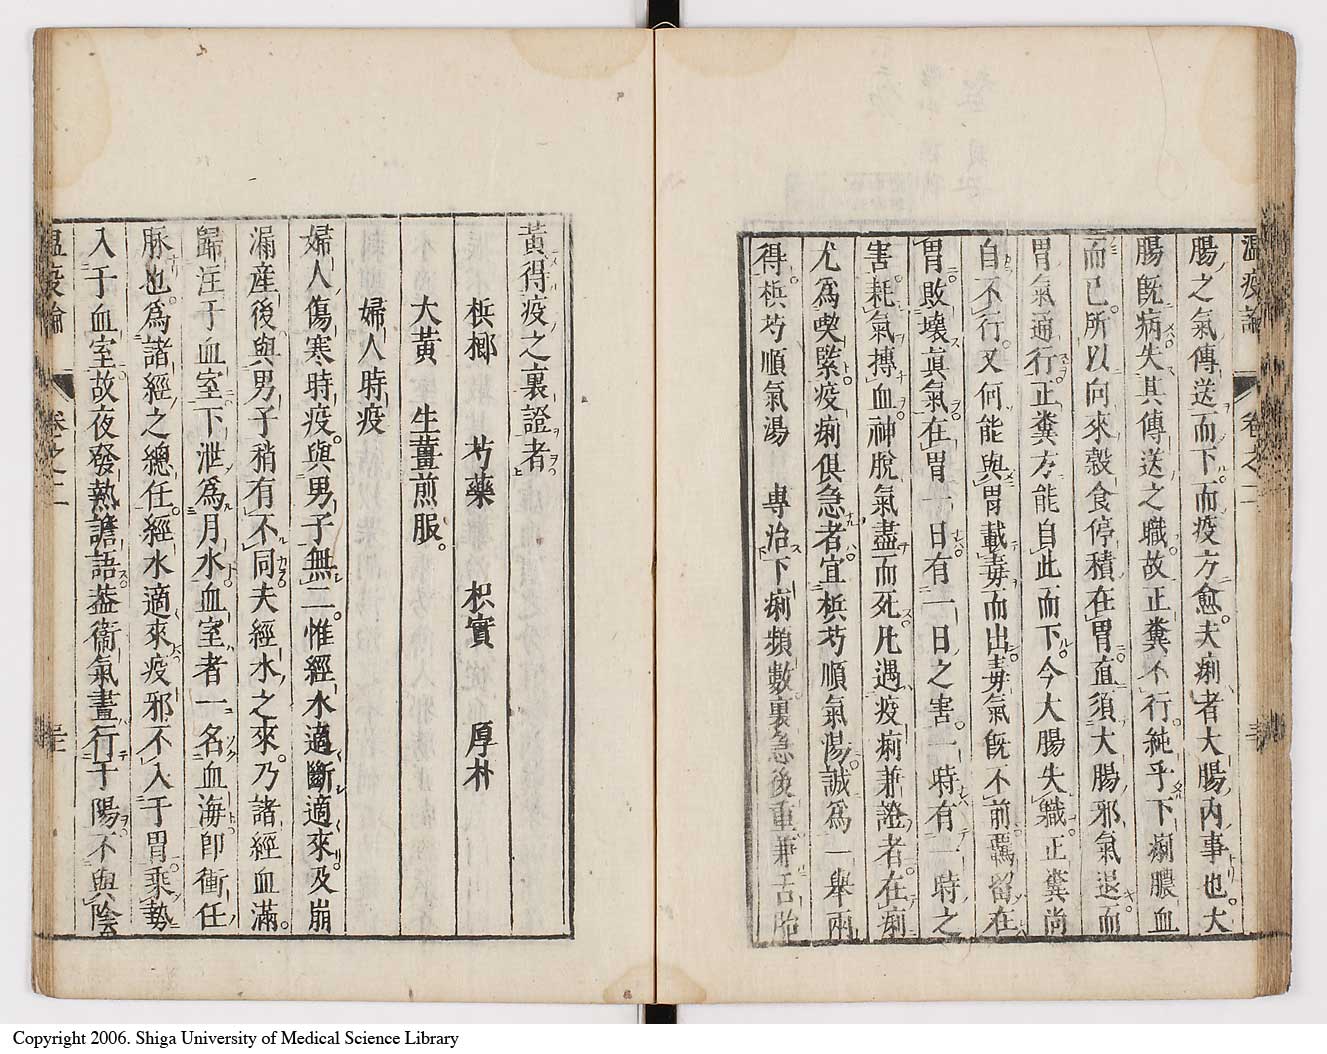 温疫論 卷之二
腸之氣傳送而下而疫方愈夫痢者大腸內事也大
腸既病失其傳送之職故正糞不行純乎下痢膿血
而已所以向來穀食停積在胃直須大腸邪氣退而
胃氣通行正糞方能自此而下今大腸失職正糞尚
自不行又何能與胃載毒而出毒氣既不前羈留在
胃敗壞眞氣在胃一日有一日之害一時有一時之
害耗氣搏血神脫氣盡而死凡遇疫痢兼證者在痢
尤爲喫緊疫痢俱急者宜梹芍順氣湯誠爲一舉兩
得梹芍順氣湯 專治下痢頻數裏急後重兼舌胎
黃得疫之裏證者
梹榔 芍藥 枳實 厚朴
大黃 生薑煎服。
婦人時疫
婦人傷寒時疫。與男子無二。惟經水適斷適來。及崩
漏產後。與男子稍有不同夫經水之來。乃諸經血滿。
歸注于血室下泄爲月水。血室者一名血海即衝任
脉也。爲諸經之總任。經水適來疫邪不入于胃乘勢
入于血室故夜發熱譫語葢衞氣晝行于陽不與陰
温疫論 卷之二